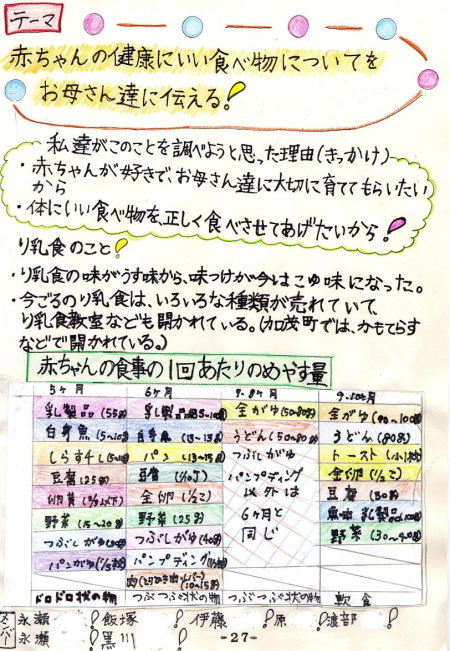 テーマ
赤ちゃんの健康にいい食べ物についてを
お母さん達に伝える!
私達がこのことを調べようと思った理由(きっかけ)
・赤ちゃんが好きで、お母さん達に大切に育ててもらいたい
から
・体にいい食べ物を、正しく食べさせてあげたいから!
り乳食のこと!
・り乳食の味がうす味から、味つけが今はこゆ味になった。
・今ごろのり乳食は、いろいろな種類が売れていて、
り乳食教室なども開かれている。(加茂町では、かもてらす
などで開かれている。)
赤ちゃんの食事の1回あたりのめやす量
5ヶ月 6ヶ月 7.8ヶ月 9.10ヶ月
乳製品(55g) 乳製品 全がゆ(50~80g) 全がゆ(90~100g)
白身魚(5~10g) 白身魚(13~15g) うどん(50~80g) うどん(80g)
しらす干し(5~10g) パン(13~15g) つぶしがゆ トースト
豆腐(25g) 豆腐 パンプディング 全卵(1/2コ)
卵黄(2/3以下) 全卵(1/2コ) 以外は 豆腐(30g)
野菜(15~20g) 野菜(25g) 6ヶ月と 魚肉 乳製品
つぶしがゆ つぶしがゆ(40g) 同じ 野菜(30~40g)
パンがゆ パンプディング
肉(とりひき肉・レバー)(10~15g)
ドロドロ状の物 つぶつぶ状の物 つぶつぶ状の物 軟食
永瀬! 飯塚! 伊藤! 原! 渡部!
永瀬! 黒川!
-27-